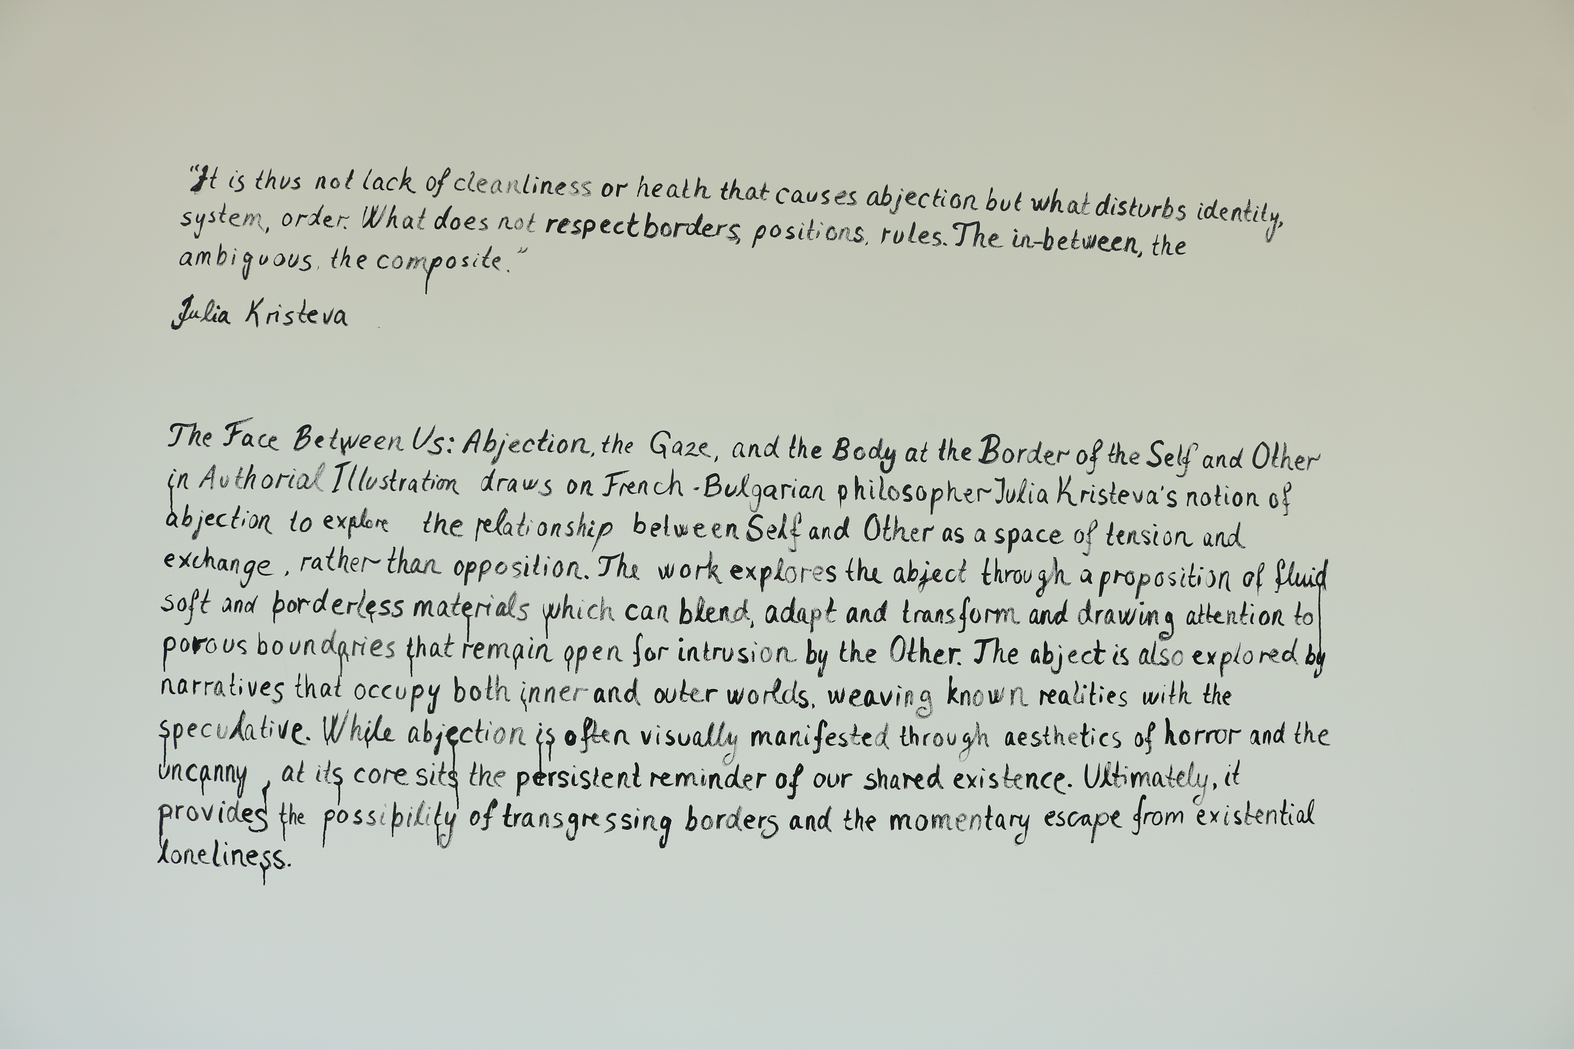 "It is thus not lack of cleanliness or heath that causes abjection but what disturbs identity,
system, order. What does not respect borders, positions, rules. The in-between, the
ambiguous, the composite."
Julia Kristeva
The Face Between Us: Abjection, the Gaze, and the Body at the Border of the Self and Other
in Authorial Illustration draws on French-Bulgarian philosopher Julia Kristeva's notion of
abjection to explore the relationship between Self and Other as a space of tension and
exchange, rather than opposition. The work explores the abject through a proposition of fluid
soft and borderless materials which can blend, adapt and transform and drawing attention to
porous boundaries that remain open for intrusion by the Other. The abject is also explored by
narratives that occupy both inner and outer worlds, weaving known realities with the
speculative. While abjection is often visually manifested through aesthetics of horror and the
uncanny, at its core sits the persistent reminder of our shared existence. Ultimately, it
provides the possibility of transgressing borders and the momentary escape from existential
loneliness.